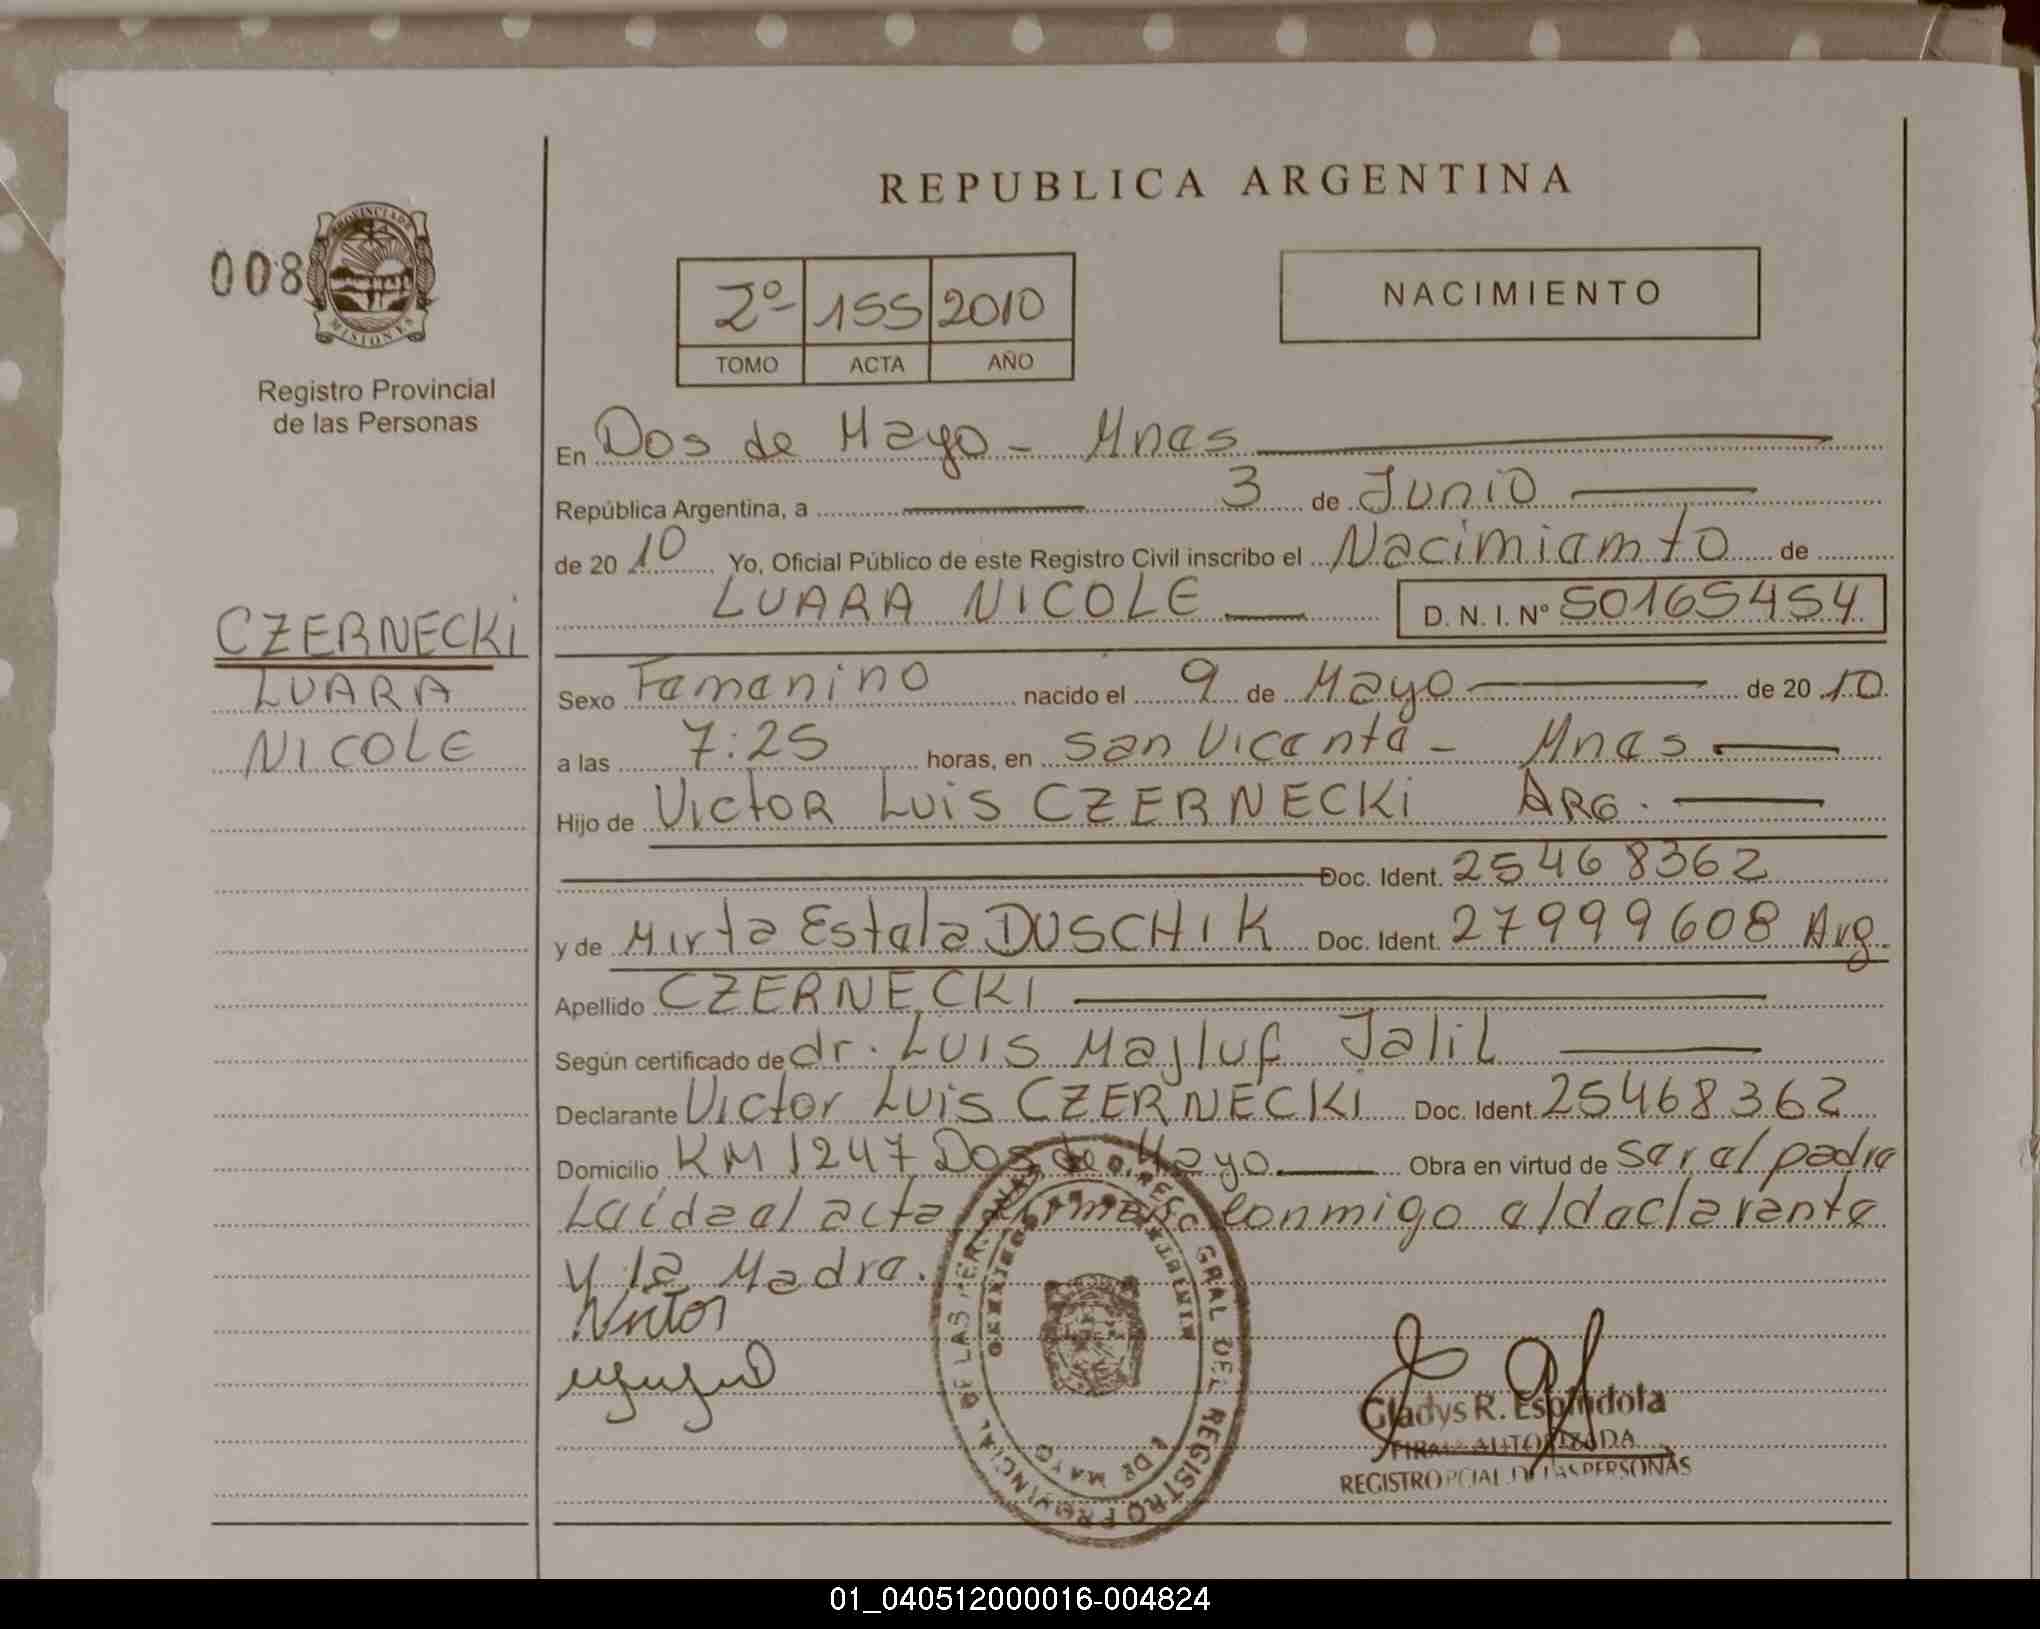 REPUBLICA ARGENTINA
008
PROVINCIA DE
MISIONES
Registro Provincial
de las Personas
2º 155 2010
TOMO ACTA AÑO
NACIMIENTO
En Dos de Mayo - Mnes
República Argentina, a 3 de Junio
de 2010 Yo, Oficial Público de este Registro Civil inscribo el Nacimiento de
LUARA NICOLE D. N. I. Nº 50165454
CZERNECKi
LUARA
NICOLE
Sexo Femenino nacido el 9 de Mayo de 2010
a las 7:25 horas, en San Vicente - Mnes
Hijo de Victor Luis CZERNECKi ARG.
Doc. Ident. 25468362
y de Mirta Estela DUSCHIK Doc. Ident. 27999608 Arg.
Apellido CZERNECKI
Según certificado de dr. Luis Majluf Jalil
Declarante Victor Luis CZERNECKI Doc. Ident. 25468362
Domicilio KM 1247 Dos de Mayo Obra en virtud de ser el padre
Leída el acta firman conmigo el declarante
y la Madre.
Victor
REGISTRO PROVINCIAL DE LAS PERSONAS
GRAL DEL
DE MAYO
Gladys R. Espindola
FIRMA AUTORIZADA
REGISTRO PCIAL. DE LAS PERSONAS
01_040512000016-004824